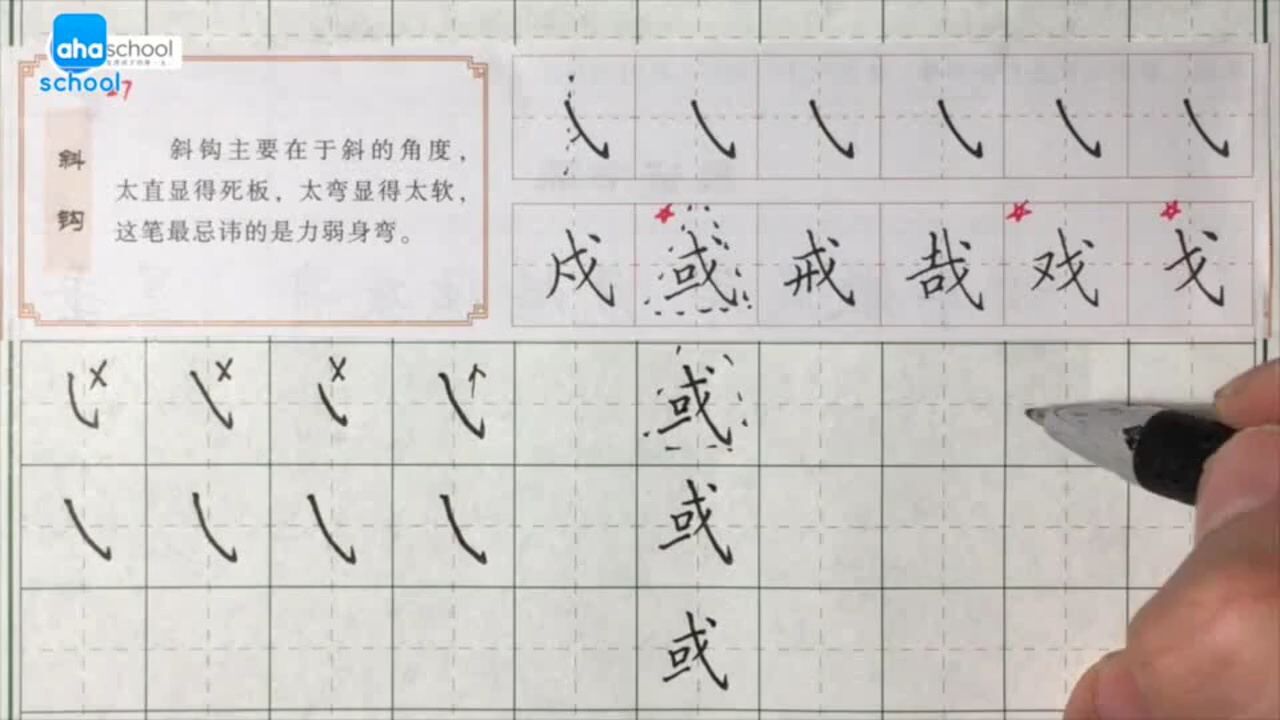 aha school
school
27
斜
钩
斜钩主要在于斜的角度，
太直显得死板，太弯显得太软，
这笔最忌讳的是力弱身弯。
戍 或 戒 哉 戏 戈
或
或
或